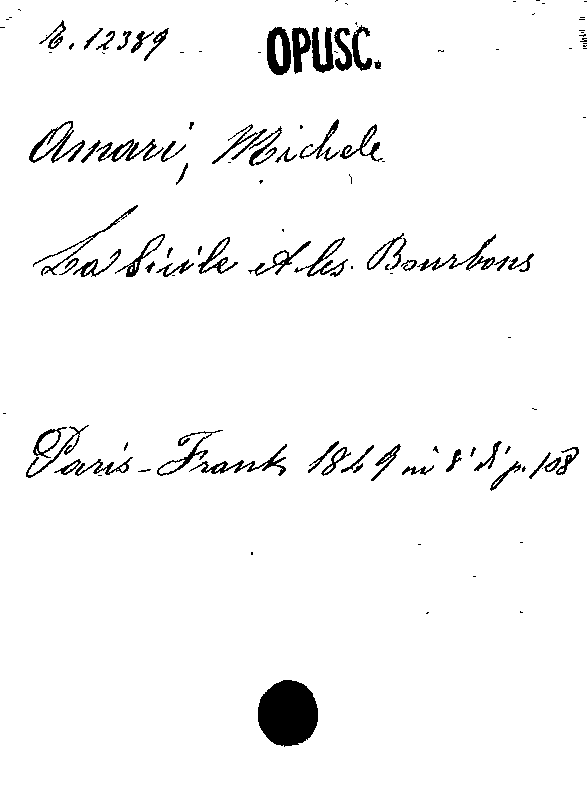 E. 12389 OPUSC.
Amari, Michele
La Sicile et les Bourbons
Paris - Frank 1849 in 8° di p. 108